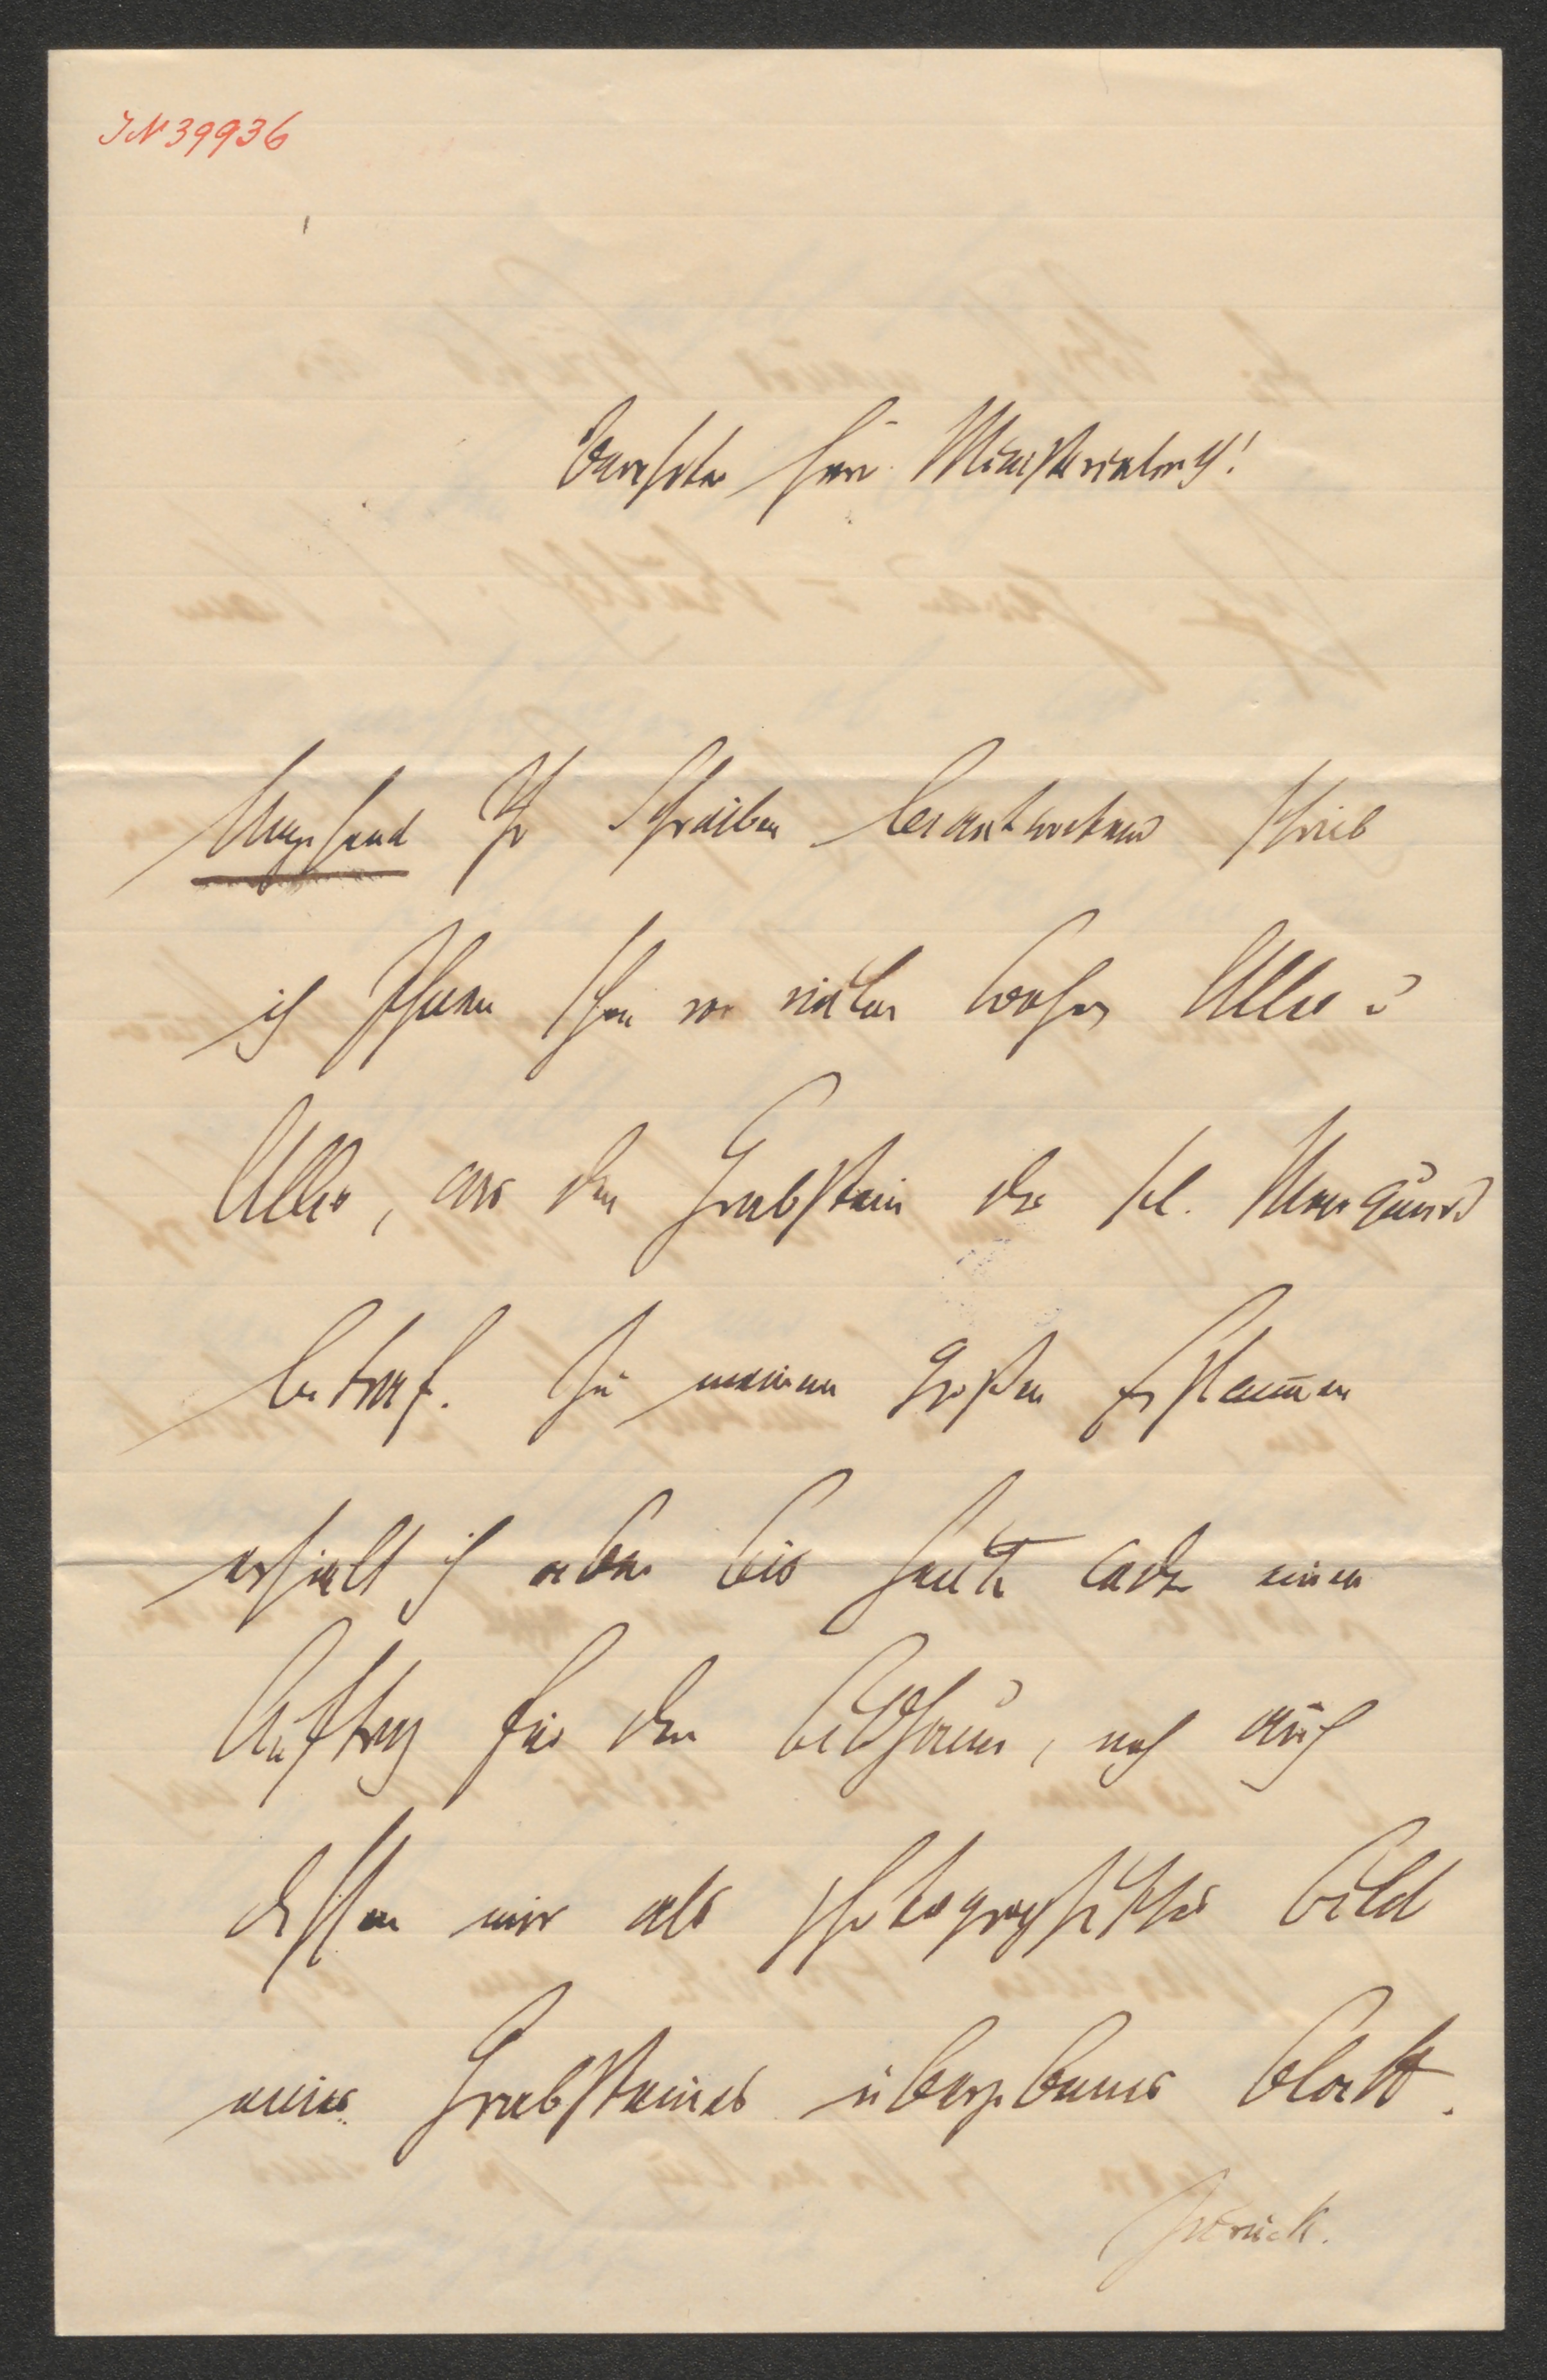 IN 39936
Verehrter Herr Ministerialrath!
Umgehend Ihr Schreiben beantwortend schrieb
ich Ihnen schon vor vielen Wochen Alles
Alles, was den Grabstein des sel.
betraf. Zu meinem großen Erstaunen
erhielt ich aber bis heute weder einen
Auftrag für den Bildhauer, noch auch
dessen mir als photographisches Bild
eines Grabsteines übergebenes Blatt
zurück.